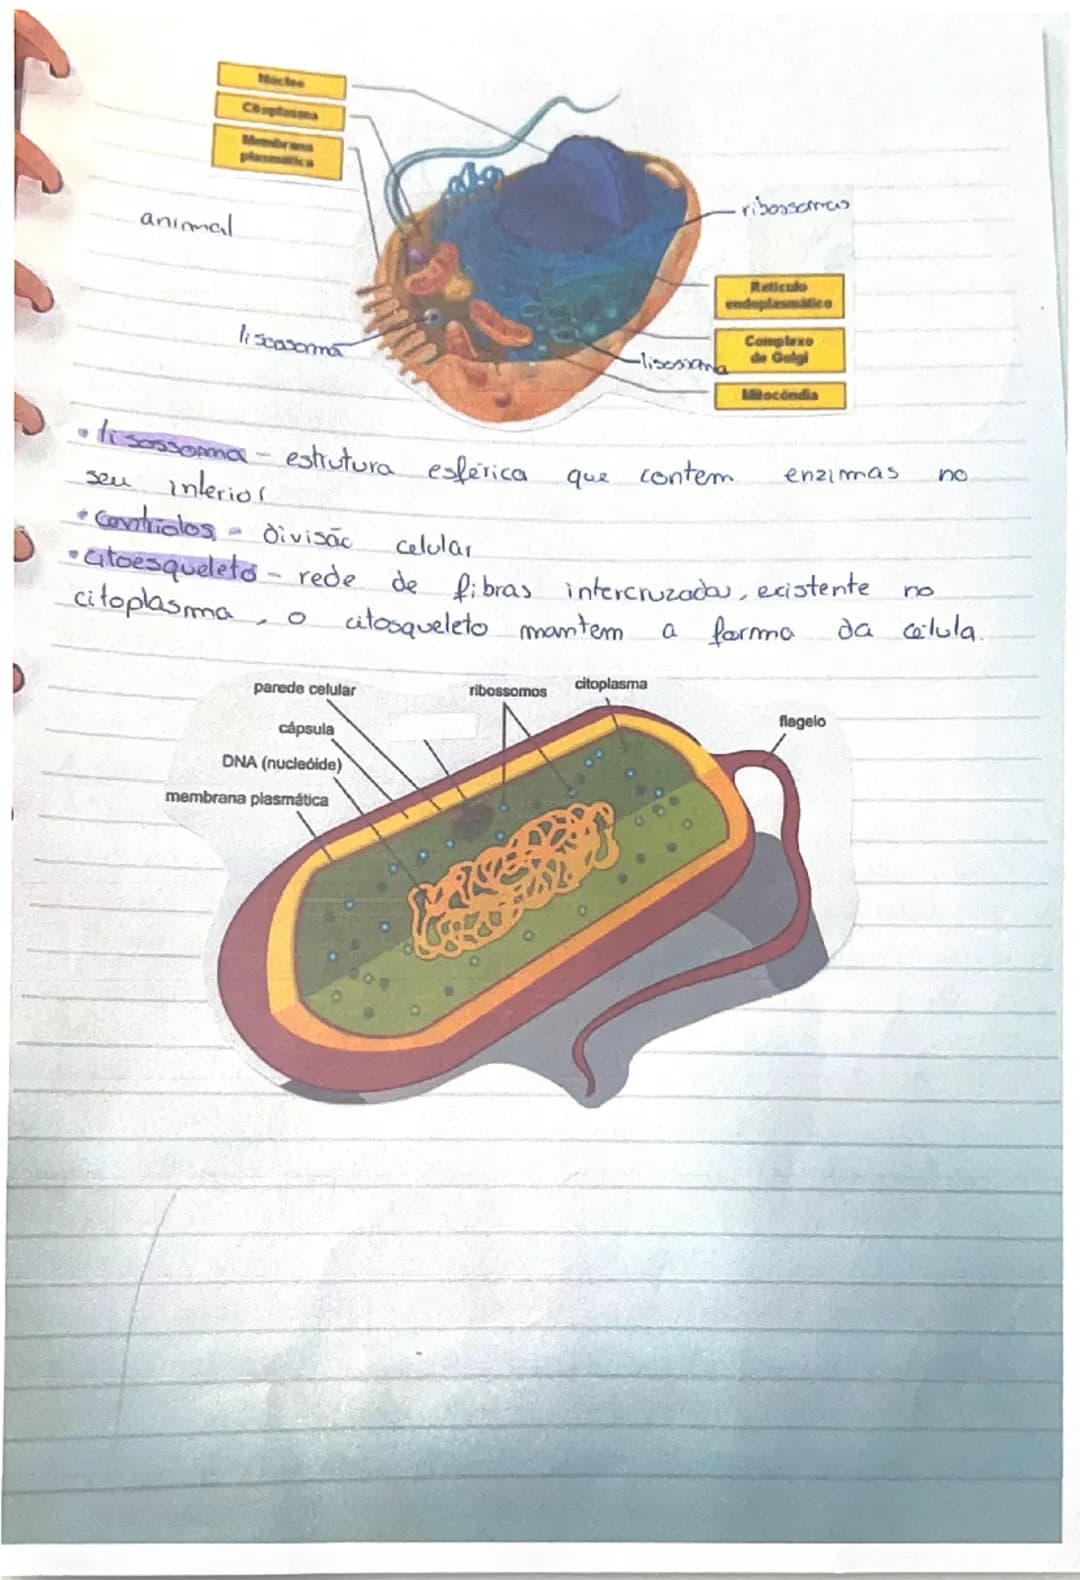 Núcleo
Citoplasma
Membrana
plasmática
animal
ribossomas
Retículo
endoplasmático
Complexo
de Golgi
Mitocôndia
liscosoma
lisossoma
• lisossoma - estrutura esférica que contem enzimas no
seu interior
• Centriolos - divisão celular
• citoesqueleto - rede de fibras intercruzada, existente no
citoplasma, o citosqueleto mantem a forma da célula.
parede celular
ribossomos
citoplasma
cápsula
flagelo
DNA (nucleóide)
membrana plasmática